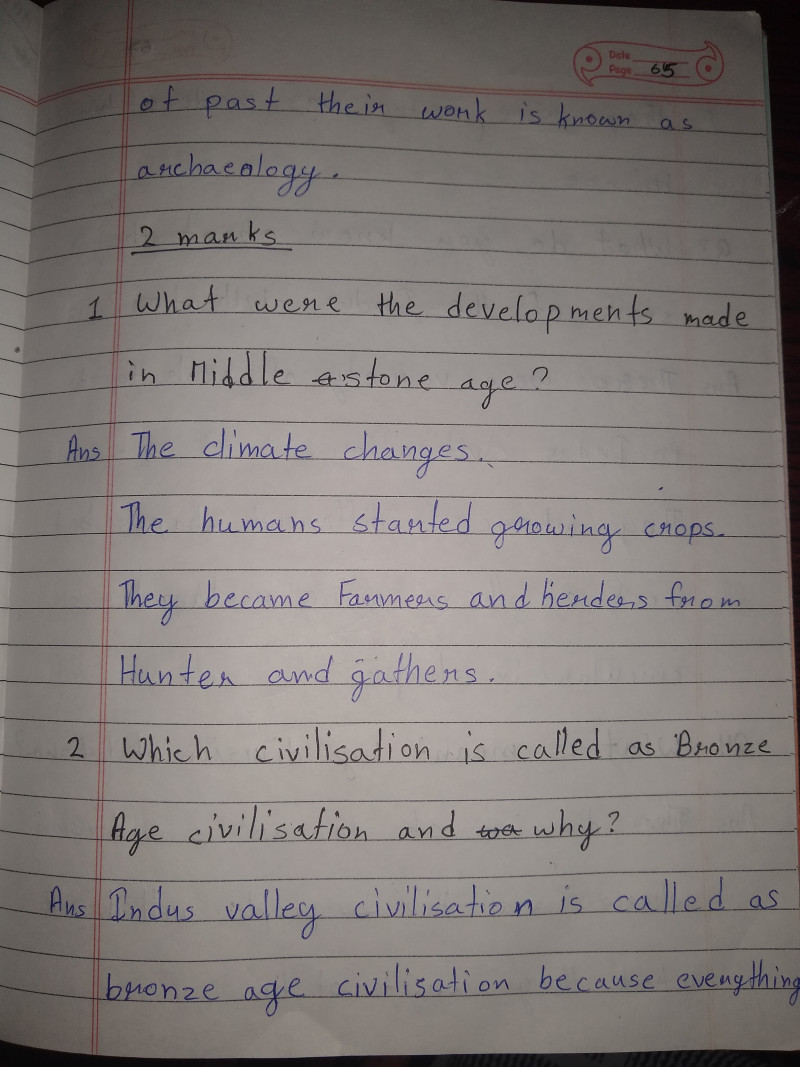 Date
Page 65
of past their work is known as
archaeology.
2 marks
1 What were the developments made
in Middle stone age?
Ans The climate changes.
The humans started growing crops.
They became Farmers and herders from
Hunter and gathers.
2 Which civilisation is called as Bronze
Age civilisation and why?
Ans Indus valley civilisation is called as
bronze age civilisation because everything